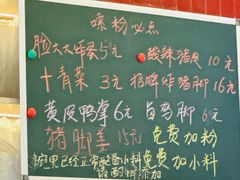 嗦粉必点
脸大大炸蛋5元 酸辣猪皮10元
十青菜3元 招牌炸猪脚16元
黄皮鸭掌6元 白鸡脚6元
猪脚姜15元 免费加粉
粉里已经正常 小料免费加小料
添加